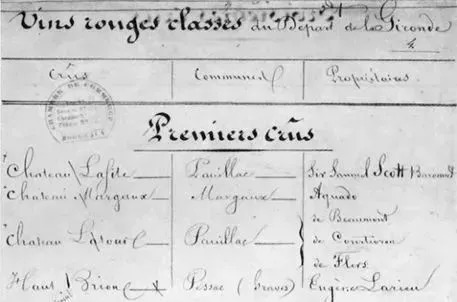 Vins rouges classés du Départ. de la Gironde
Crûs Communes Propriétaires
CHAMBRE DE COMMERCE
BORDEAUX
Premiers Crûs
Chateau Lafite Pauillac Sir Samuel Scott Baronnet
Chateau Margaux Margaux Aguado
de Beaumont
Chateau Latour Pauillac de Courtivron
de Flers
Haut Brion Pessac (Graves) Eugène Larieu